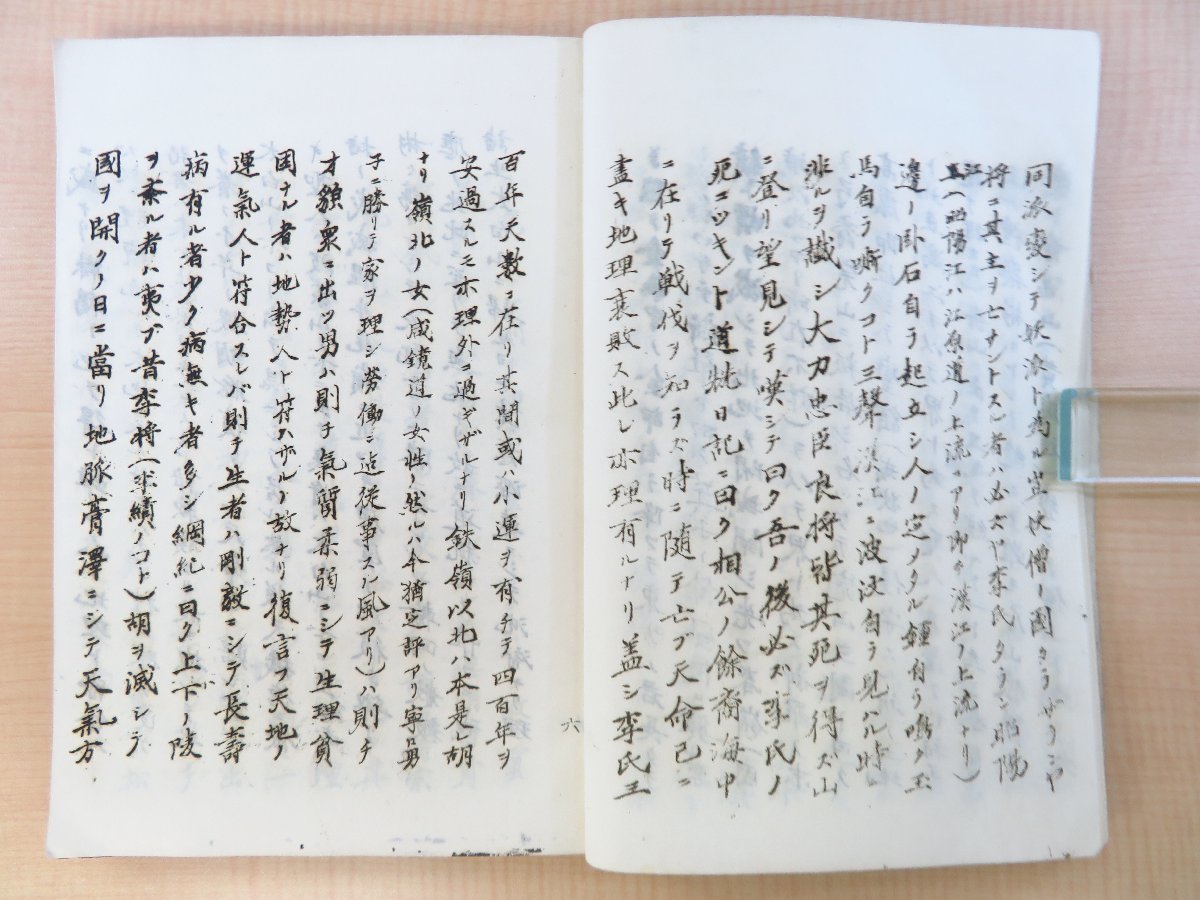 同派変シテ妖派ト為ル豈伏僧ノ國タラザランヤ
将ニ其主ヲ亡ナントスル者ハ必ズヤ李氏タラン昭陽
江(昭陽江ハ江原道ノ上流ニアリ即チ漢江ノ上流ナリ)
邊ノ卧石自ラ起立シ人ノ定メタル鐘自ラ鳴ク玉
馬自ラ嘶クコト三聲漢江ニ波没自ラ見ハル時
非ルヲ讖シ大力忠臣良将皆其死ヲ得ズ山
ニ登リ望見シテ嘆シテ曰ク吾ノ後必ズ李氏ノ
死ニツキント道詵日記ニ曰ク相公ノ餘裔海中
ニ在リテ戦伐ヲ知ラズ時ニ随テ亡ブ天命已ニ
盡キ地理衰敗ス此レ亦理有ルナリ盖シ李氏王
六
百年天数ニ在リ其間或ハ小運ヲ有チテ四百年ヲ
安過スルモ亦理外ニ過ギザルナリ鉄嶺以北ハ本是レ胡
ナリ嶺北ノ女(咸鏡道ノ女性ノ然ルハ今猶定評アリ寧ロ男
子ニ勝リテ家ヲ理シ労働ニ迄従事スル風アリ)ハ則チ
才貌衆ニ出ツ男ハ則チ氣質柔弱ニシテ生理貧
困ナル者ハ地勢人ト符合ハザルノ故ナリ復言フ天地ノ
運氣人ト符合スレバ則チ生者ハ剛毅ニシテ長壽
病有ル者少ク病無キ者多シ綱紀ニ曰ク上下ノ陵
ヲ柔ル者ハ夷ブ昔李将(李績ノコト)胡ヲ滅シテ
國ヲ開クノ日ニ當リ地脈膏澤ニシテ天氣方